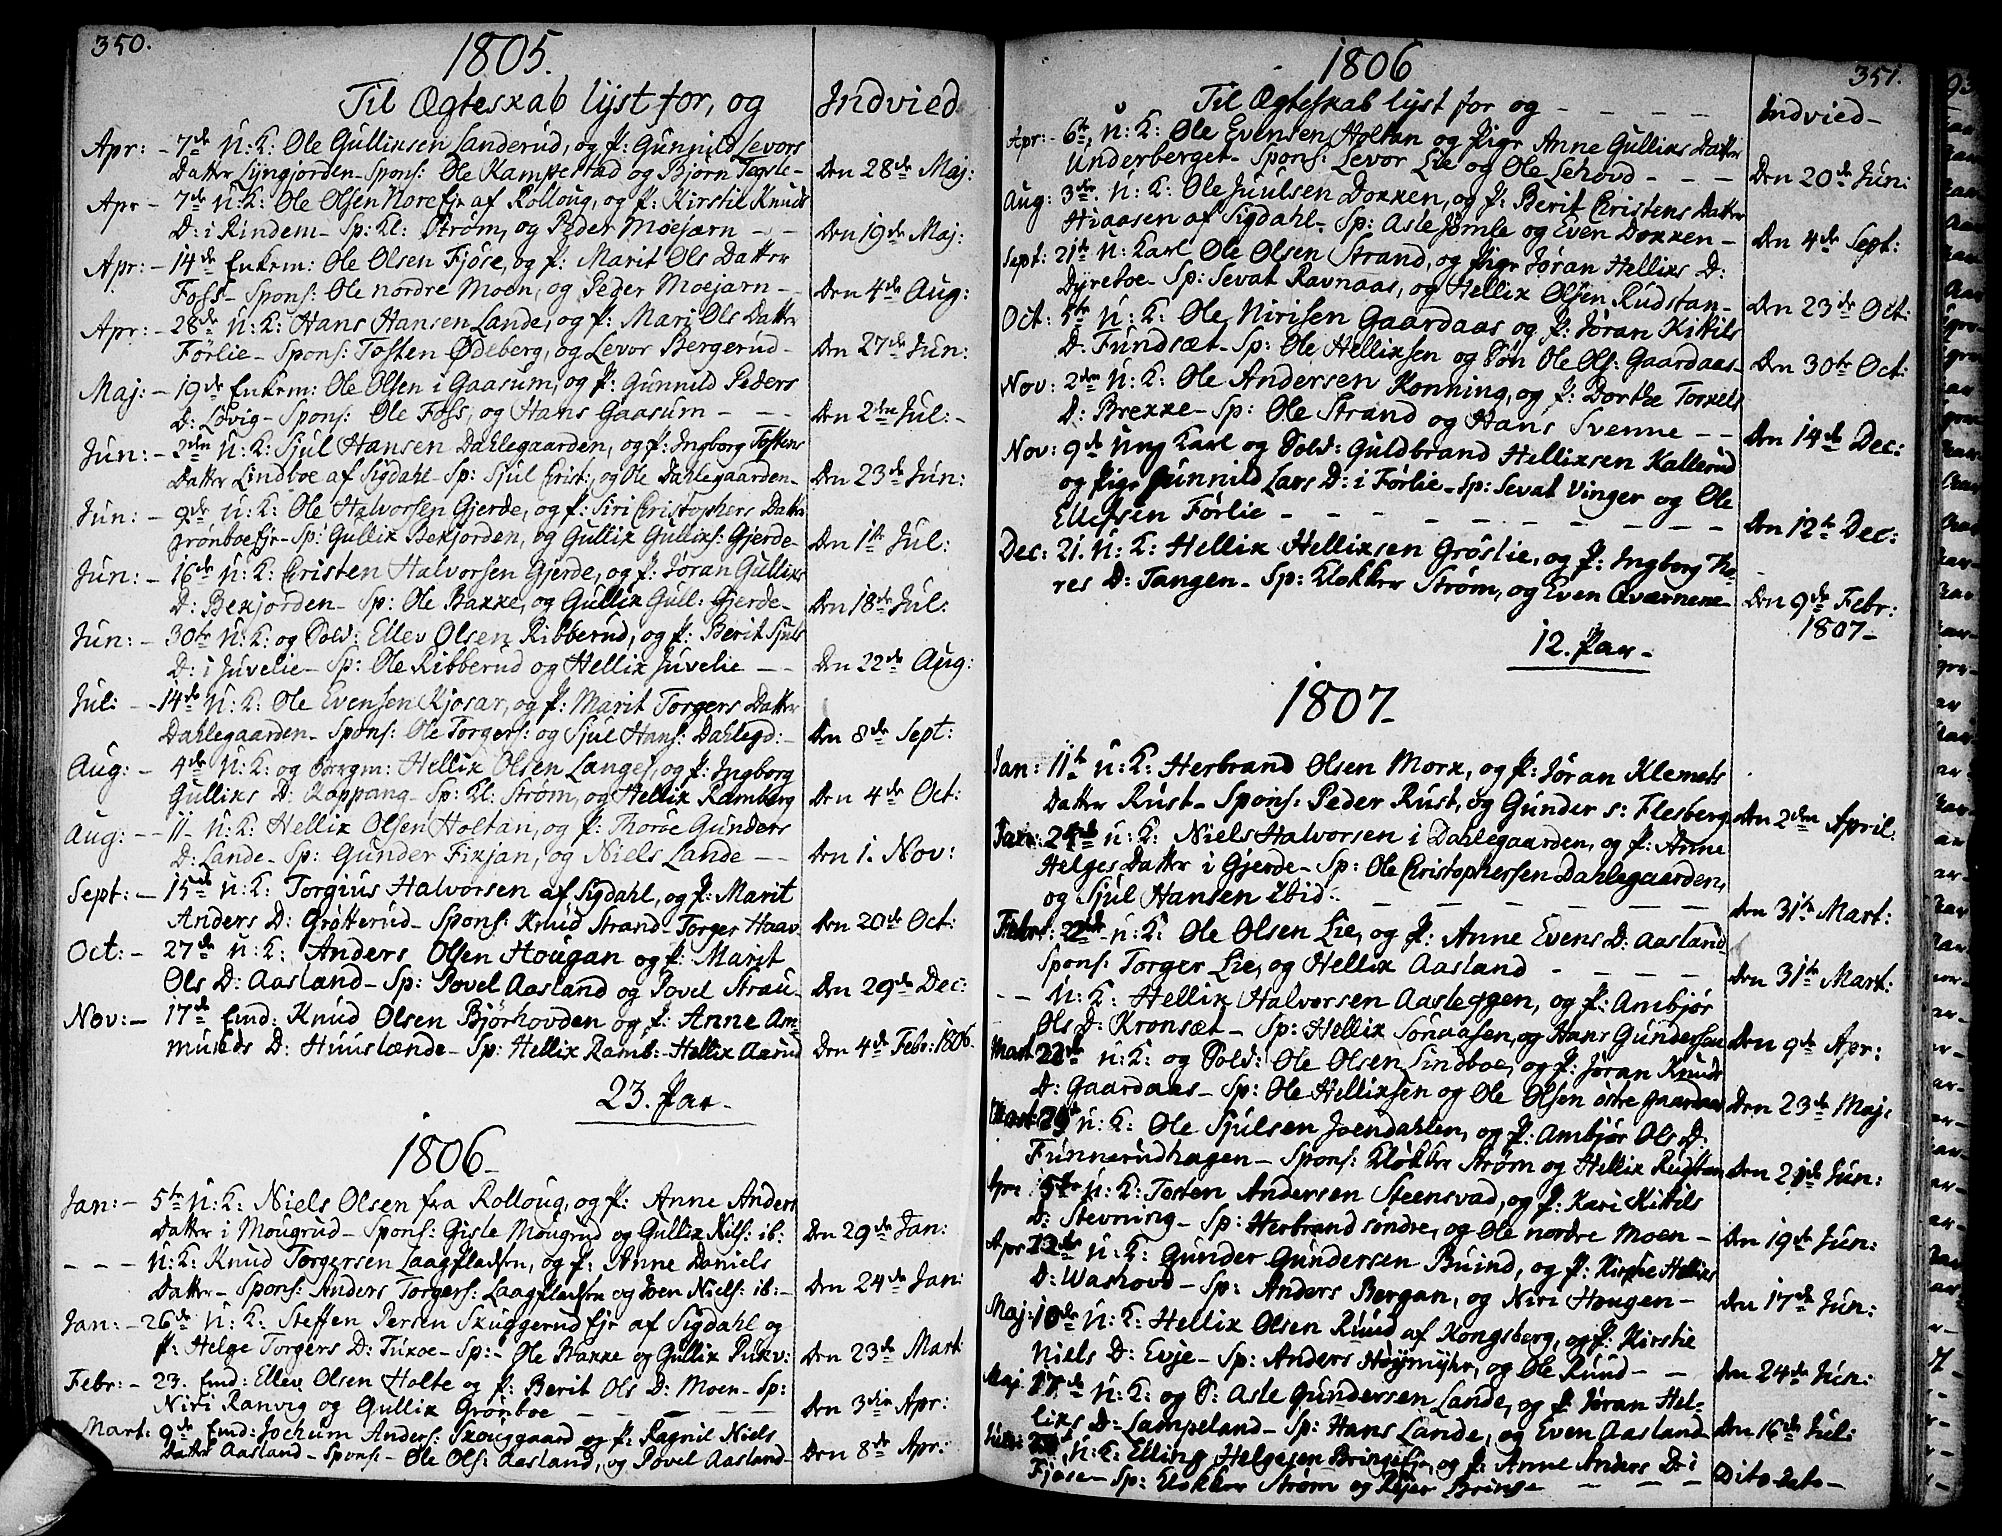 350.
1805.
Til Ægteskab lyst for, og
Indvied
Apr: - 7de U: K: Ole Gulliksen Landerud, og P: Gunnild Levors
Datter Lyngjorden - Spons: Ole Kampestad og Bjørn Tegsle -
Den 28de Maj:
Apr - 7de U: K: Ole Olsen Norefjr af Rolloug, og P: Kirstil Knuds
D: i Rindem - Sp: Kl: Strøm, og Peder Moejarn - -
Den 19de Maj:
Apr: - 14de Enkem: Ole Olsen Fjøse, og P: Marit Ols Datter
Foss - Spons: Ole nordre Moen, og Peder Moejarn -
Den 4de Aug:
Apr: - 28de U: K: Hans Hansen Lande, og P: Mari Ols Datter
Førlie - Spons: Tosten Ødeberg, og Levor Bergerud -
Den 27de Jun:
Maj: - 19de Enkem: Ole Olsen i Gaasum, og P: Gunnild Peders
D: Løvig - Spons: Ole Foss, og Hans Gaasum - - -
Den 2den Jul: -
Jun: - 2den U: K: Sjul Hansen Dahlegaarden, og P: Ingborg Tostens
Datter Lindboe af Sigdahl - Sp: Sjul Christ:, og Ole Dahlegaarden -
Den 23de Jun:
Jun: - 9de U: K: Ole Halvorsen Gjerde, og P: Siri Christophers Datter
Grønboefjr - Sp: Gullik Bekjorden, og Gullik Gulliks: Gjerde -
Den 1te Jul:
Jun: - 16de U: K: Christen Halvorsen Gjerde, og P: Jøran Gulliks
D: Bekjorden - Sp: Ole Bakke, og Gullik Gull: Gjerde -
Den 18de Jul:
Jun: - 30te U: K: og Sold: Ellev Olsen Ribberud, og P: Berit Sjuls
D: i Juvelie - Sp: Ole Ribberud og Hellik Juvelie - -
Den 22de Aug:
Jul: - 14de U: K: Ole Evensen Kjosar, og P: Marit Torgers Datter
Dahlegaarden - Spons: Ole Torgers: og Sjul Hans: Dahlegd: -
Den 8de Sept:
Aug: - 4de U: K: og Bergm: Hellik Olsen Langes, og P: Ingborg
Gulliks D: Kappang - Sp: Kl: Strøm, og Hellik Ramberg
Den 4de Oct:
Aug: - 11 - U: K: Hellik Olsen Holtan, og P: Thoroe Gunders
D: Lande - Sp: Gunder Fikjan, og Niels Lande - -
Den 1. Nov:
Sept: - 15de U: K: Torgius Halvorsen af Sigdahl, og P: Marit
Anders D: Grøtterud - Spons: Knud Strand - Torger Haav -
Den 20de Oct:
Oct: - 27de U: K: Anders Olsen Hougan og P: Marit
Ols D: Aasland - Sp: Povel Aasland og Povel Strau -
Den 29de Dec:
Nov: - 17de Emd: Knud Olsen Bjørhovden og P: Anne Am-
munds D: Huuslænde - Sp: Hellik Ramb: - Hellik Aarud
Den 4de Febr: 1806.
23. Par -
1806 -
Jan: - 5te U: K: Niels Olsen fra Rolloug, og P: Anne Anders
Datter i Mougrud - Spons: Gisle Mougrud og Gullik Nils: ib:
Den 29de Jan:
- - - U: K: Knud Torgersen Laagpladsen, og P: Anne Daniels
Datter - Spons: Anders Torgers: Laagpladsen og Joen Niels: ib: -
Den 24de Jan:
Jan: - 26de U: K: Steffen Persen Skuggerudfjr af Sigdahl og
P: Helge Torgers D: Tukoe - Sp: - Ole Bakke og Gullik
Den 23de Mart:
Febr: - 23. Emd: Ellev Olsen Holte og P: Berit Ols D: Moen - Sp:
Niri Ranvig og Gullik Grønboe - - - - -
Den 3die Apr:
Mart: 9de Emd: Jochum Anders: Skouggaard og P: Ragnil Niels
Datter Aasland - Spons: - Ole Ols: Aasland, og Povel Aasland -
Den 8de Apr:
351.
1806
Til Ægteskab lyst for og - - - -
Indvied -
Apr: - 6te, U: K: Ole Evensen Holtan og Pige Anne Gulliks Datter
Underberget - Spons: Levor Lie og Ole Lehovd - - -
Den 20de Jun:
Aug: 3die. U: K: Ole Juulsen Dokken, og P: Berit Christens Datter
Hiaasen af Sigdahl - Sp: Asle Jømle og Even Dokken -
Den 4de Sept:
Sept: 21te U: Karl Ole Olsen Strand, og Pige Jøran Helliks D:
Dyretoe - Sp: Sevat Ravnaas, og Hellik Olsen Rudstan -
Den 23de Oct:
Oct: 5te U: K: Ole Nirisen Gaardaas og P: Jøran Kittils
D: Fundsæt - Sp: Ole Helliksen og Søn Ole Ols: Gaardaas -
Den 30te Oct:
Nov: 2den U: K: Ole Andersen Konning, og P: Dorthe Torkels
D: Brekke - Sp: Ole Strand og Hans Svenne - -
Den 14de Dec:
Nov: 9de Ung Karl og Sold: Guldbrand Helliksen Kallerud
og Pige Gunnild Lars D: i Førlie - Sp: Sevat Vinger og Ole
Ellefsen Førlie - - - - - - - - -
Den 12te Dec:
Dec: 21. U: K: Hellik Helliksen Grøslie, og P: Ingborg Tho-
res D: Tangen - Sp: Klokker Strøm, og Even Qværnene -
Den 9de Febr:
1807 -
12. Par -
1807 -
Jan: 11te U: K: Herbrand Olsen Mork, og P: Jøran Klemets
Datter Rust - Spons: Peder Rust, og Gunder s: Flesberg
Den 2den April.
U: K: Niels Halvorsen i Dahlegaarden, og P: Anne
Helges Datter i Gjerde - Sp: Ole Christophersen Dahlegaarden,
og Sjul Hansen ibid: - - - - - -
Den 31te Mart:
Febr: 22de U: K: Ole Olsen Lie, og P: Anne Evens D: Aasland
Spons: Torger Lie, og Hellik Aasland - - - -
Den 31te Mart:
- - U: K: Hellik Halvorsen Aasleggen, og P: Ambjør
Ols D: Kronsæt - Sp: Hellik Sønaasen, og Hans Gundersen
Den 9de Apr:
Mart: 22de U: K: og Sold: Ole Olsen Lindboe, og P: Jøran Knuds
D: Gaardaas - Sp: Ole Helliksen og Ole Olsen østre Gaardaas
Den 23de Maj:
Mart: 29 U: K: Ole Sjulsen Joendahlen, og P: Ambjør Ols D:
Funnerudhagen - Spons: Klokker Strøm og Hellik Rudstan
Den 21de Jun:
Apr: 5te U: K: Tosten Andersen Steensvad, og P: Kari Kittils
D: Stevning - Sp: Herbrand søndre, og Ole nordre Moen -
Den 19de Jun:
Apr: 12te U: K: Gunder Gundersen Buind, og P: Kirstie Helliks
D: Washovd - Sp: Anders Bergan, og Niri Hougen -
Den 17de Jun:
Maj: 10de U: K: Hellik Olsen Ruud af Kongsberg, og P: Kirstie
Niels D: Evje - Sp: Anders Høymyhr, og Ole Ruud - -
Den 24de Jun:
Maj: 17de U: K: og S: Asle Gundersen Lande, og P: Jøran Hel-
liks D: Lampeland - Sp: Hans Lande, og Even Aasland
Den 16de Jul:
U: K: Elling Helgesen Bringefjr, og P: Anne Anders D: i
Fjøse - Sp: Klokker Strøm og Rejer Bringe - - - -
Dito dato -